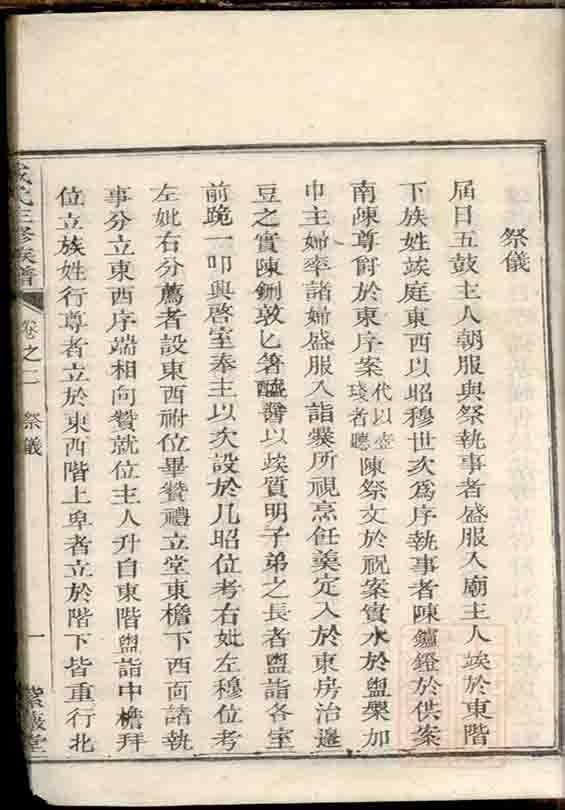 祭儀
屆日五鼓主人朝服與祭執事者盛服入廟主人竢於東階
下族姓竢庭東西以昭穆世次爲序執事者陳鑪鐙於供案
南陳尊爵於東序案代以壺琖者聽陳祭文於祝案實水於盥槃加
巾主婦率諸婦盛服入詣爨所視烹飪羹定入於東房治籩
豆之實陳鉶敦匕箸醯醬以竢質明子弟之長者盥詣各室
前跪一叩興啓室奉主以次設於几昭位考右妣左穆位考
左妣右分薦者設東西祔位畢贊禮立堂東檐下西向諸執
事分立東西序端相向贊就位主人升自東階盥詣中檐拜
位立族姓行尊者立於東西階上卑者立於階下皆重行北
氏三修族譜
卷之二
祭儀
一
堂